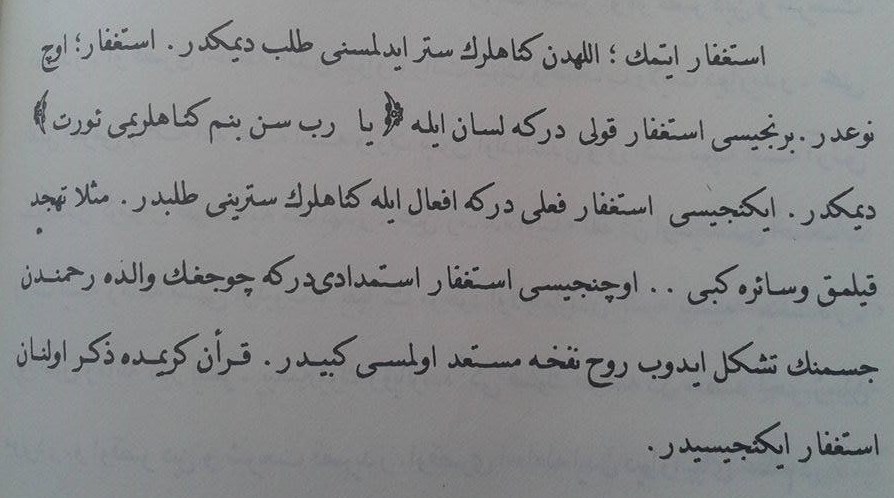 استغفار ايتمك ؛ اللهدن كناهلرك ستر ايدلمسنى طلب ديمكدر . استغفار؛ اوچ
نوعدر . برنجيسى استغفار قولى دركه لسان ايله ﴿ يا رب سن بنم كناهلريمى ئورت ﴾
ديمكدر . ايكنجيسى استغفار فعلى دركه افعال ايله كناهلرك سترينى طلبدر . مثلا تهجد
قيلمق وسائره كبى . . اوچنجيسى استغفار استمدادى‌دركه چوجغك والده رحمندن
جسمنك تشكل ايدوب روح نفخه مستعد اولمسى كبيدر . قرأن كريمده ذكر اولنان
استغفار ايكنجيسيدر .